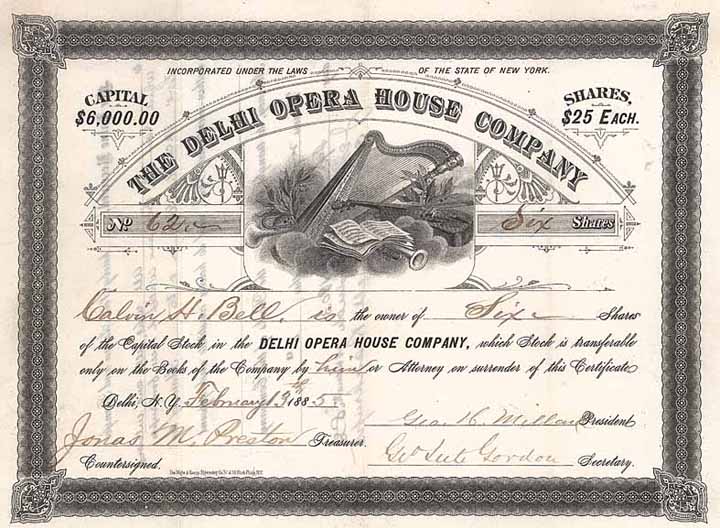 INCORPORATED UNDER THE LAWS OF THE STATE OF NEW YORK.
CAPITAL
$6,000.00
SHARES,
$25 EACH.
THE DELHI OPERA HOUSE COMPANY
No 62 Six Shares
Calvin H. Bell, is the owner of Six Shares
of the Capital Stock in the DELHI OPERA HOUSE COMPANY, which Stock is transferable
only on the Books of the Company by him or Attorney on surrender of this Certificate
Delhi, N.Y. February 13th 1885
Geo. H. Millar President
Jonas M. Preston Treasurer.
Gordon Secretary.
Countersigned.